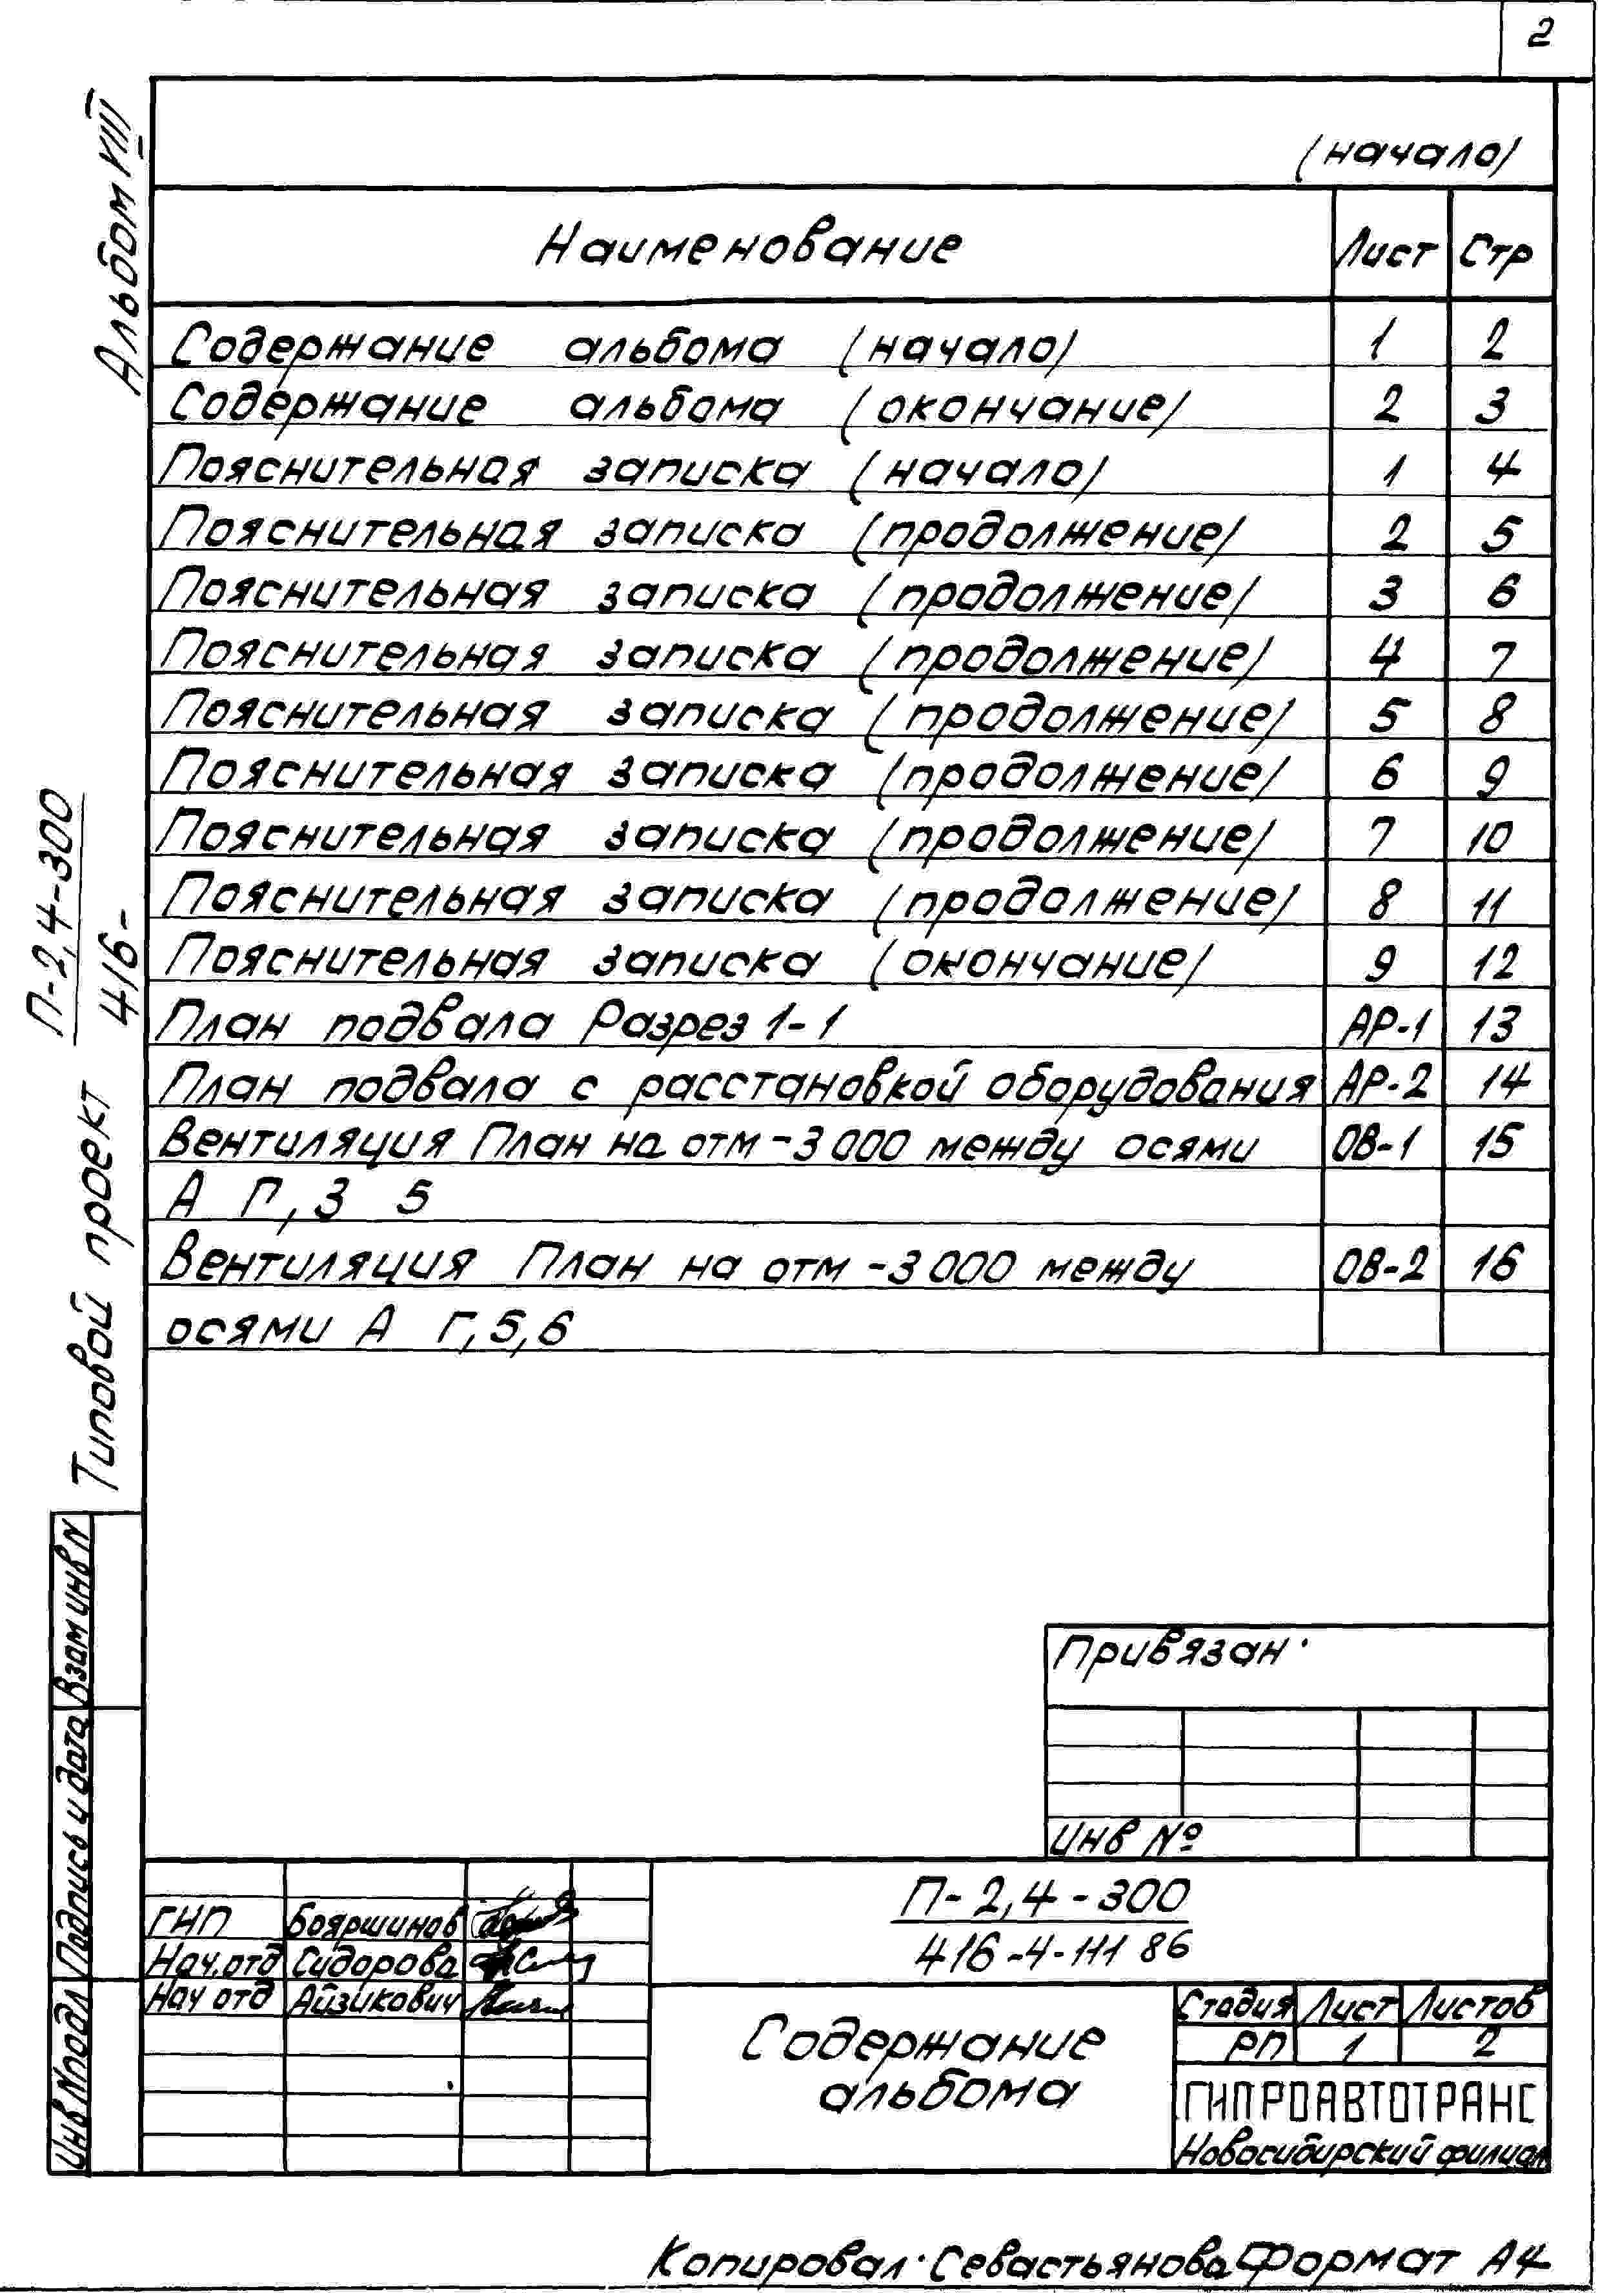 2
Альбом VIII
(начало)
Наименование Лист Стр
Содержание альбома (начало) 1 2
Содержание альбома (окончание) 2 3
Пояснительная записка (начало) 1 4
Пояснительная записка (продолжение) 2 5
Пояснительная записка (продолжение) 3 6
Пояснительная записка (продолжение) 4 7
Пояснительная записка (продолжение) 5 8
Пояснительная записка (продолжение) 6 9
Пояснительная записка (продолжение) 7 10
Пояснительная записка (продолжение) 8 11
Пояснительная записка (окончание) 9 12
План подвала Разрез 1-1 АР-1 13
План подвала с расстановкой оборудования АР-2 14
Вентиляция План на отм -3 000 между осями ОВ-1 15
А Г, 3 5
Вентиляция План на отм -3 000 между ОВ-2 16
осями А Г, 5, 6
П-2,4-300
Типовой проект 416-
Взам инв N
Подпись и дата
Инв N подл
Привязан.
Инв №
П-2,4-300
416-4-111 86
ГИП Бояршинов
Нач. отд Сидорова
Нач отд Айзикович
Содержание
альбома
Стадия Лист Листов
РП 1 2
ГИПРОАВТОТРАНС
Новосибирский филиал
Копировал. Севастьянова Формат А4